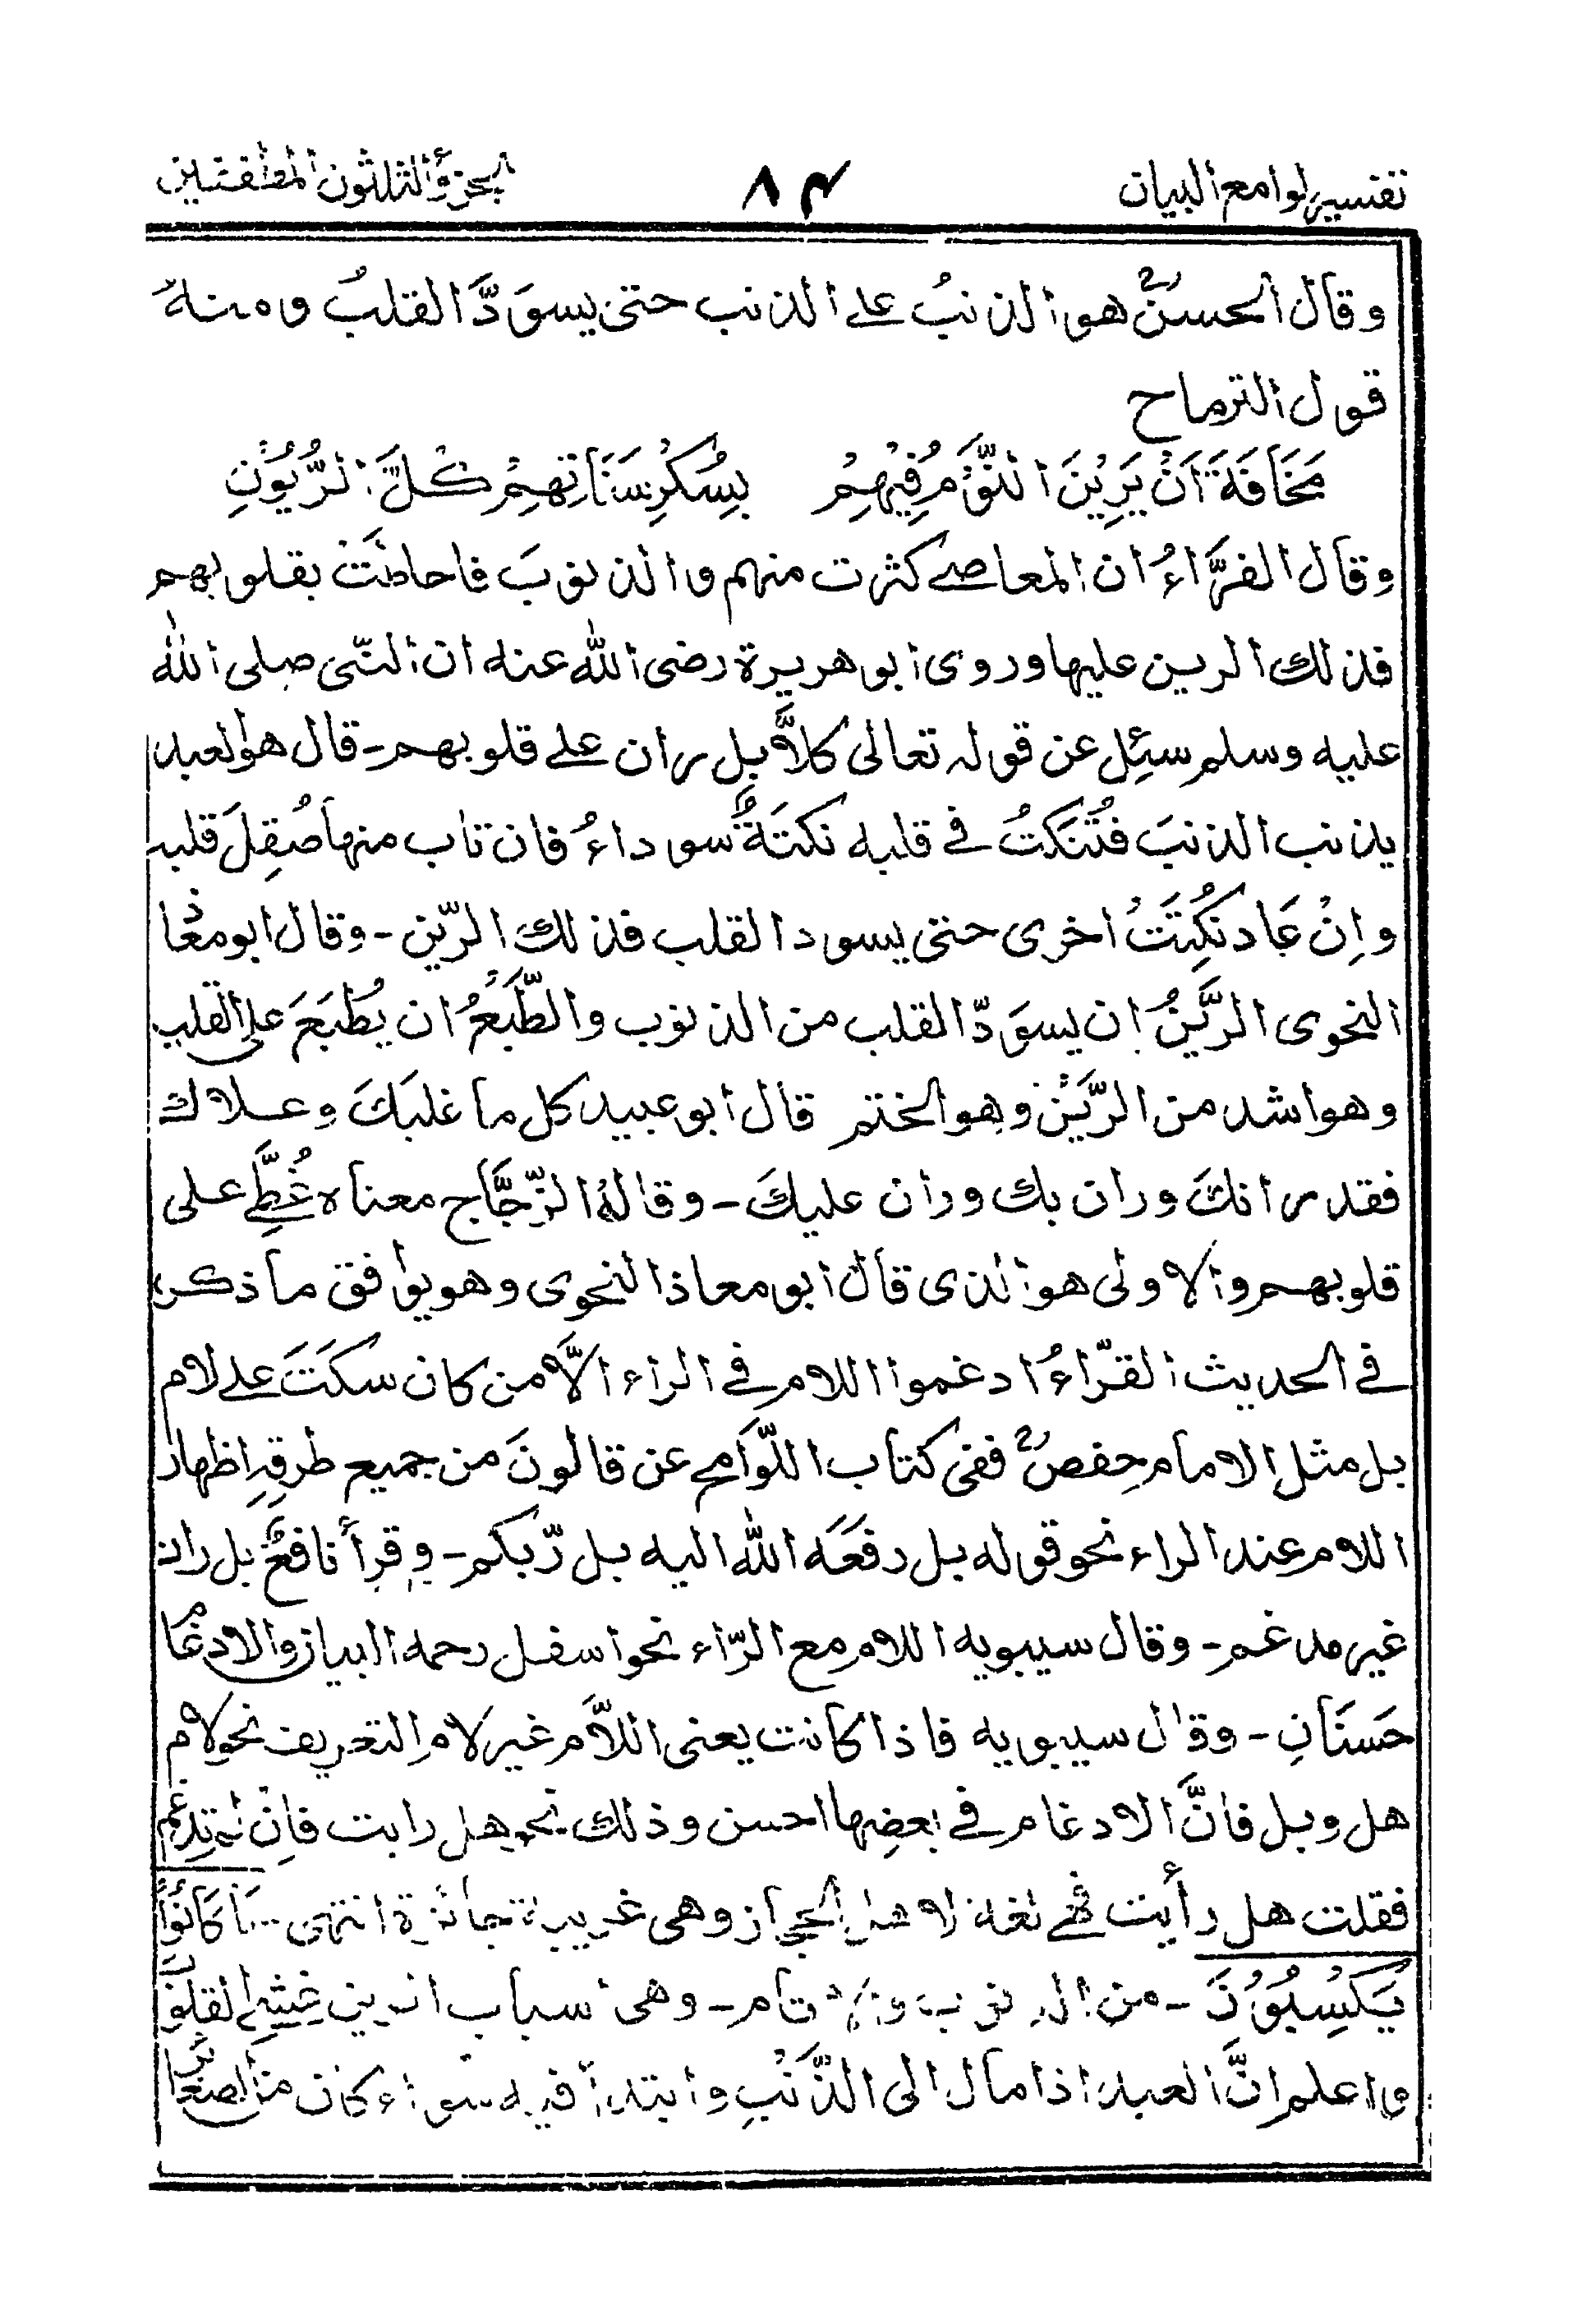 تفسير لوامع البيان
٨٣
الجزؤ الثلثون المطففين
وقال الحسنؒ هو الذنبُ على الذنب حتى يسوَدَّ القلبُ ومنه
قول الترماح
مَخَافَةَ اَنْ يَرِيْنَ النَّوْمُ فِيْهِمْ بِسُكْرِ سِنَاتِهِمْ كُلَّ الرُّيُوْنِ
وقال الفرَّاءُ ان المعاصى كثرت منهم والذنوبَ فاحاطتْ بقلوبهم
فذلك الرين عليها وروى ابو هريرة رضى الله عنه ان النّبى صلى الله
عليه وسلم سئِل عن قوله تعالى كلاَّ بل ران على قلوبهم - قال هو العبد
يذنب الذنبَ فتُنْكَتُ فى قلبه نكتَةٌ سوداءُ فان تاب منها صُقِلَ قلبه
واِنْ عَاد نُكِتَتْ اخرى حتى يسود القلب فذلك الرّين - وقال ابو معاذ
النحوى الرَّيْنُ ان يسوَدّ القلب من الذنوب والطَّبَعُ ان يُطْبَعَ على القلب
وهو اشد من الرَّيْن وهو الختم قال ابو عبيد كل ما غلبَكَ وعلاك
فقد رانك وران بك وران عليكَ - وقالهُ الزّجَّاج معناه غُطِّى على
قلوبهم والاولى هو الذى قال ابو معاذ النحوى وهو يوافق ما ذكر
فى الحديث القرّاءُ ادغموا اللام فى الراء الاَّ من كان سكتَ على لام
بل مثل الامام حفصؒ ففى كتاب اللّوَامح عن قالونَ من جميع طرقِهِ اظهار
اللام عند الراء نحو قوله بل رفعَه الله اليه بل رّبكم - وقرأ نافعٌ بل ران
غير مدغم - وقال سيبويه اللام مع الرّاء نحو اسفل رحمه البيان والادغام
حَسنَانِ - وقال سيبويه فاذا كانت يعنى اللاَّم غير لام التعريف نحو لام
هل وبل فانَّ الادغام فى بعضِها احسن وذلك نحو هل رايت فاِنْ لم تدغم
فقلت هل رأيت فهى لغة لاهل الحجاز وهى غريبة جائزة انتهى مَا كَانُوْا
يَكْسِبُوْنَ - من الذنوب - وهى اسباب الرين القلوب
واعلم انَّ العبد اذا مال الى الذَّنْبِ وابتدأ فيه سواء كان من الصغائر